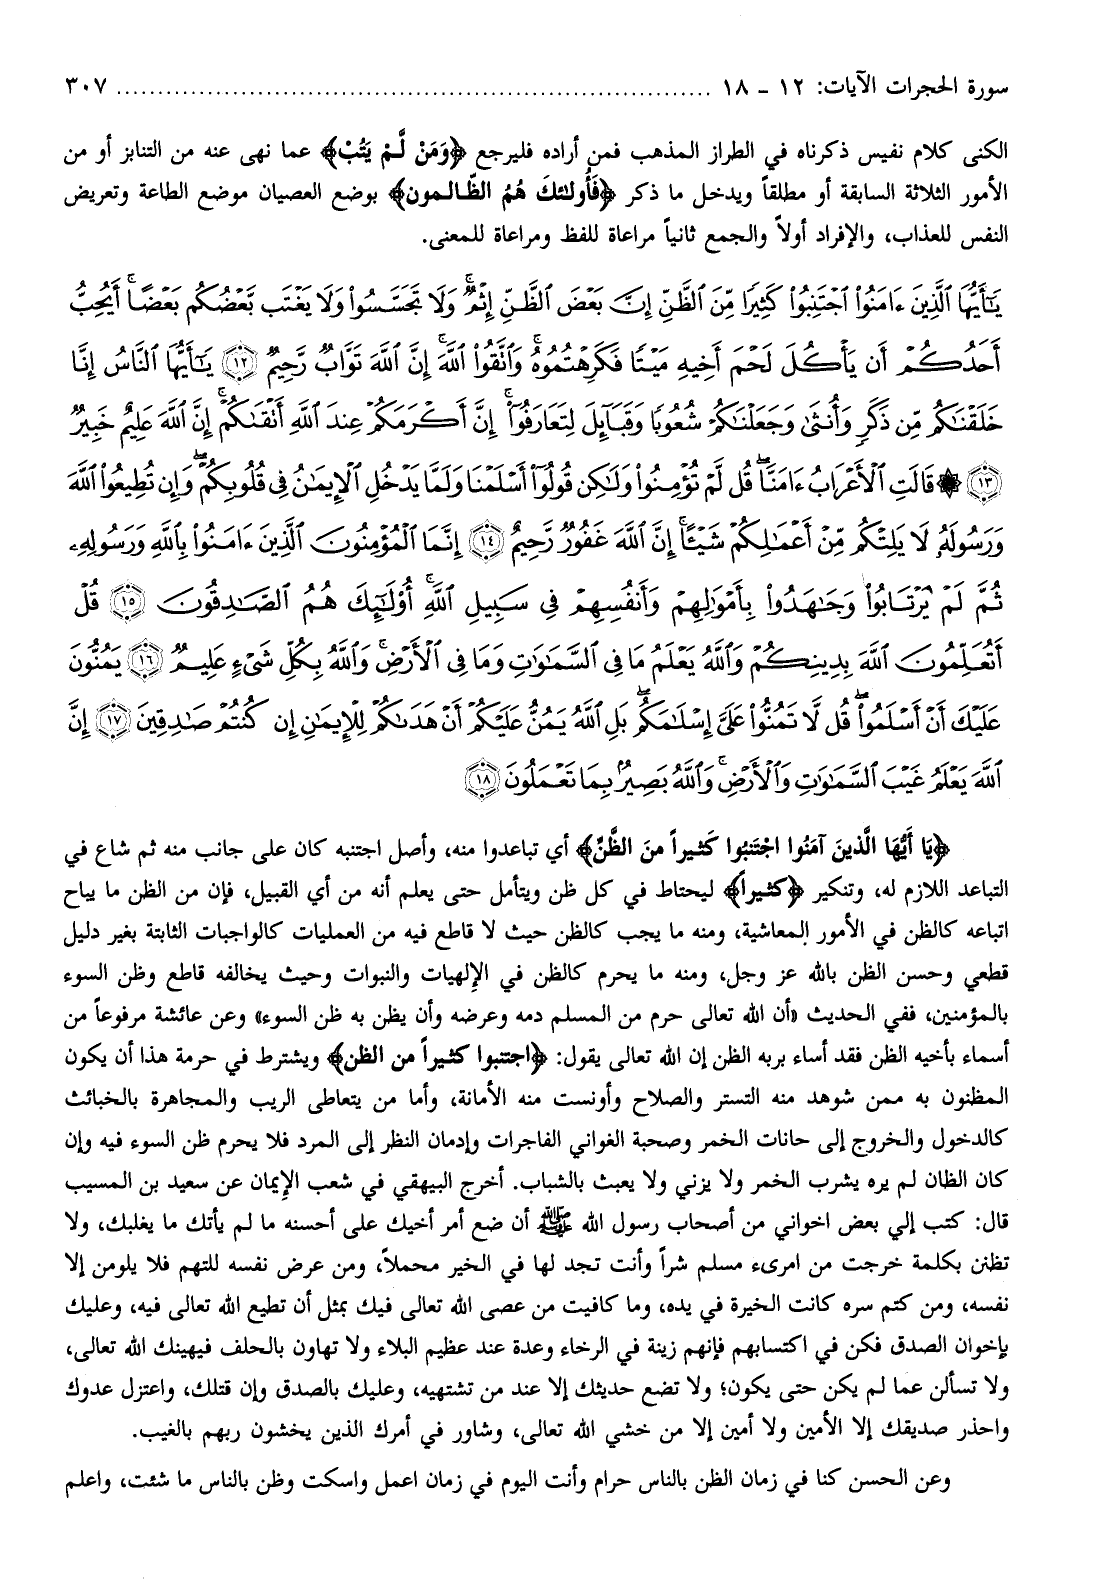 سورة الحجرات الآيات: ١٢ - ١٨ ........................................................................ ٣٠٧
الكنى كلام نفيس ذكرناه في الطراز المذهب فمن أراده فليرجع ﴿وَمَنْ لَّمْ يَتُبْ﴾ عما نهى عنه من التنابز أو من
الأمور الثلاثة السابقة أو مطلقاً ويدخل ما ذكر ﴿فَأُولئكَ هُمُ الظّالمون﴾ بوضع العصيان موضع الطاعة وتعريض
النفس للعذاب، والإفراد أولاً والجمع ثانياً مراعاة للفظ ومراعاة للمعنى.
يَٰٓأَيُّهَا ٱلَّذِينَ ءَامَنُوا۟ ٱجْتَنِبُوا۟ كَثِيرًا مِّنَ ٱلظَّنِّ إِنَّ بَعْضَ ٱلظَّنِّ إِثْمٌ ۖ وَلَا تَجَسَّسُوا۟ وَلَا يَغْتَب بَّعْضُكُم بَعْضًا ۚ أَيُحِبُّ
أَحَدُكُمْ أَن يَأْكُلَ لَحْمَ أَخِيهِ مَيْتًا فَكَرِهْتُمُوهُ ۚ وَٱتَّقُوا۟ ٱللَّهَ ۚ إِنَّ ٱللَّهَ تَوَّابٌ رَّحِيمٌ ﴿١٢﴾ يَٰٓأَيُّهَا ٱلنَّاسُ إِنَّا
خَلَقْنَٰكُم مِّن ذَكَرٍ وَأُنثَىٰ وَجَعَلْنَٰكُمْ شُعُوبًا وَقَبَآئِلَ لِتَعَارَفُوٓا۟ ۚ إِنَّ أَكْرَمَكُمْ عِندَ ٱللَّهِ أَتْقَىٰكُمْ ۚ إِنَّ ٱللَّهَ عَلِيمٌ خَبِيرٌ
﴿١٣﴾ ۞ قَالَتِ ٱلْأَعْرَابُ ءَامَنَّا ۖ قُل لَّمْ تُؤْمِنُوا۟ وَلَٰكِن قُولُوٓا۟ أَسْلَمْنَا وَلَمَّا يَدْخُلِ ٱلْإِيمَٰنُ فِى قُلُوبِكُمْ ۖ وَإِن تُطِيعُوا۟ ٱللَّهَ
وَرَسُولَهُۥ لَا يَلِتْكُم مِّنْ أَعْمَٰلِكُمْ شَيْـًٔا ۚ إِنَّ ٱللَّهَ غَفُورٌ رَّحِيمٌ ﴿١٤﴾ إِنَّمَا ٱلْمُؤْمِنُونَ ٱلَّذِينَ ءَامَنُوا۟ بِٱللَّهِ وَرَسُولِهِۦ
ثُمَّ لَمْ يَرْتَابُوا۟ وَجَٰهَدُوا۟ بِأَمْوَٰلِهِمْ وَأَنفُسِهِمْ فِى سَبِيلِ ٱللَّهِ ۚ أُو۟لَٰٓئِكَ هُمُ ٱلصَّٰدِقُونَ ﴿١٥﴾ قُلْ
أَتُعَلِّمُونَ ٱللَّهَ بِدِينِكُمْ وَٱللَّهُ يَعْلَمُ مَا فِى ٱلسَّمَٰوَٰتِ وَمَا فِى ٱلْأَرْضِ ۚ وَٱللَّهُ بِكُلِّ شَىْءٍ عَلِيمٌ ﴿١٦﴾ يَمُنُّونَ
عَلَيْكَ أَنْ أَسْلَمُوا۟ ۖ قُل لَّا تَمُنُّوا۟ عَلَىَّ إِسْلَٰمَكُم ۖ بَلِ ٱللَّهُ يَمُنُّ عَلَيْكُمْ أَنْ هَدَىٰكُمْ لِلْإِيمَٰنِ إِن كُنتُمْ صَٰدِقِينَ ﴿١٧﴾ إِنَّ
ٱللَّهَ يَعْلَمُ غَيْبَ ٱلسَّمَٰوَٰتِ وَٱلْأَرْضِ ۚ وَٱللَّهُ بَصِيرٌۢ بِمَا تَعْمَلُونَ ﴿١٨﴾
﴿يَا أَيُّهَا الَّذينَ آمَنُوا اجْتَنبُوا كَثيراً منَ الظَّنِّ﴾ أي تباعدوا منه، وأصل اجتنبه كان على جانب منه ثم شاع في
التباعد اللازم له، وتنكير ﴿كثيراً﴾ ليحتاط في كل ظن ويتأمل حتى يعلم أنه من أي القبيل، فإن من الظن ما يباح
اتباعه كالظن في الأمور المعاشية، ومنه ما يجب كالظن حيث لا قاطع فيه من العمليات كالواجبات الثابتة بغير دليل
قطعي وحسن الظن بالله عز وجل، ومنه ما يحرم كالظن في الإلهيات والنبوات وحيث يخالفه قاطع وظن السوء
بالمؤمنين، ففي الحديث «أن الله تعالى حرم من المسلم دمه وعرضه وأن يظن به ظن السوء» وعن عائشة مرفوعاً من
أسماء بأخيه الظن فقد أساء بربه الظن إن الله تعالى يقول: ﴿اجتنبوا كثيراً من الظن﴾ ويشترط في حرمة هذا أن يكون
المظنون به ممن شوهد منه التستر والصلاح وأونست منه الأمانة، وأما من يتعاطى الريب والمجاهرة بالخبائث
كالدخول والخروج إلى حانات الخمر وصحبة الغواني الفاجرات وإدمان النظر إلى المرد فلا يحرم ظن السوء فيه وإن
كان الظان لم يره يشرب الخمر ولا يزني ولا يعبث بالشباب. أخرج البيهقي في شعب الإيمان عن سعيد بن المسيب
قال: كتب إلي بعض اخواني من أصحاب رسول الله ﷺ أن ضع أمر أخيك على أحسنه ما لم يأتك ما يغلبك، ولا
تظنن بكلمة خرجت من امرىء مسلم شراً وأنت تجد لها في الخير محملاً، ومن عرض نفسه للتهم فلا يلومن إلا
نفسه، ومن كتم سره كانت الخيرة في يده، وما كافيت من عصى الله تعالى فيك بمثل أن تطيع الله تعالى فيه، وعليك
بإخوان الصدق فكن في اكتسابهم فإنهم زينة في الرخاء وعدة عند عظيم البلاء ولا تهاون بالحلف فيهينك الله تعالى،
ولا تسألن عما لم يكن حتى يكون؛ ولا تضع حديثك إلا عند من تشتهيه، وعليك بالصدق وإن قتلك، واعتزل عدوك
واحذر صديقك إلا الأمين ولا أمين إلا من خشي الله تعالى، وشاور في أمرك الذين يخشون ربهم بالغيب.
وعن الحسن كنا في زمان الظن بالناس حرام وأنت اليوم في زمان اعمل واسكت وظن بالناس ما شئت، واعلم